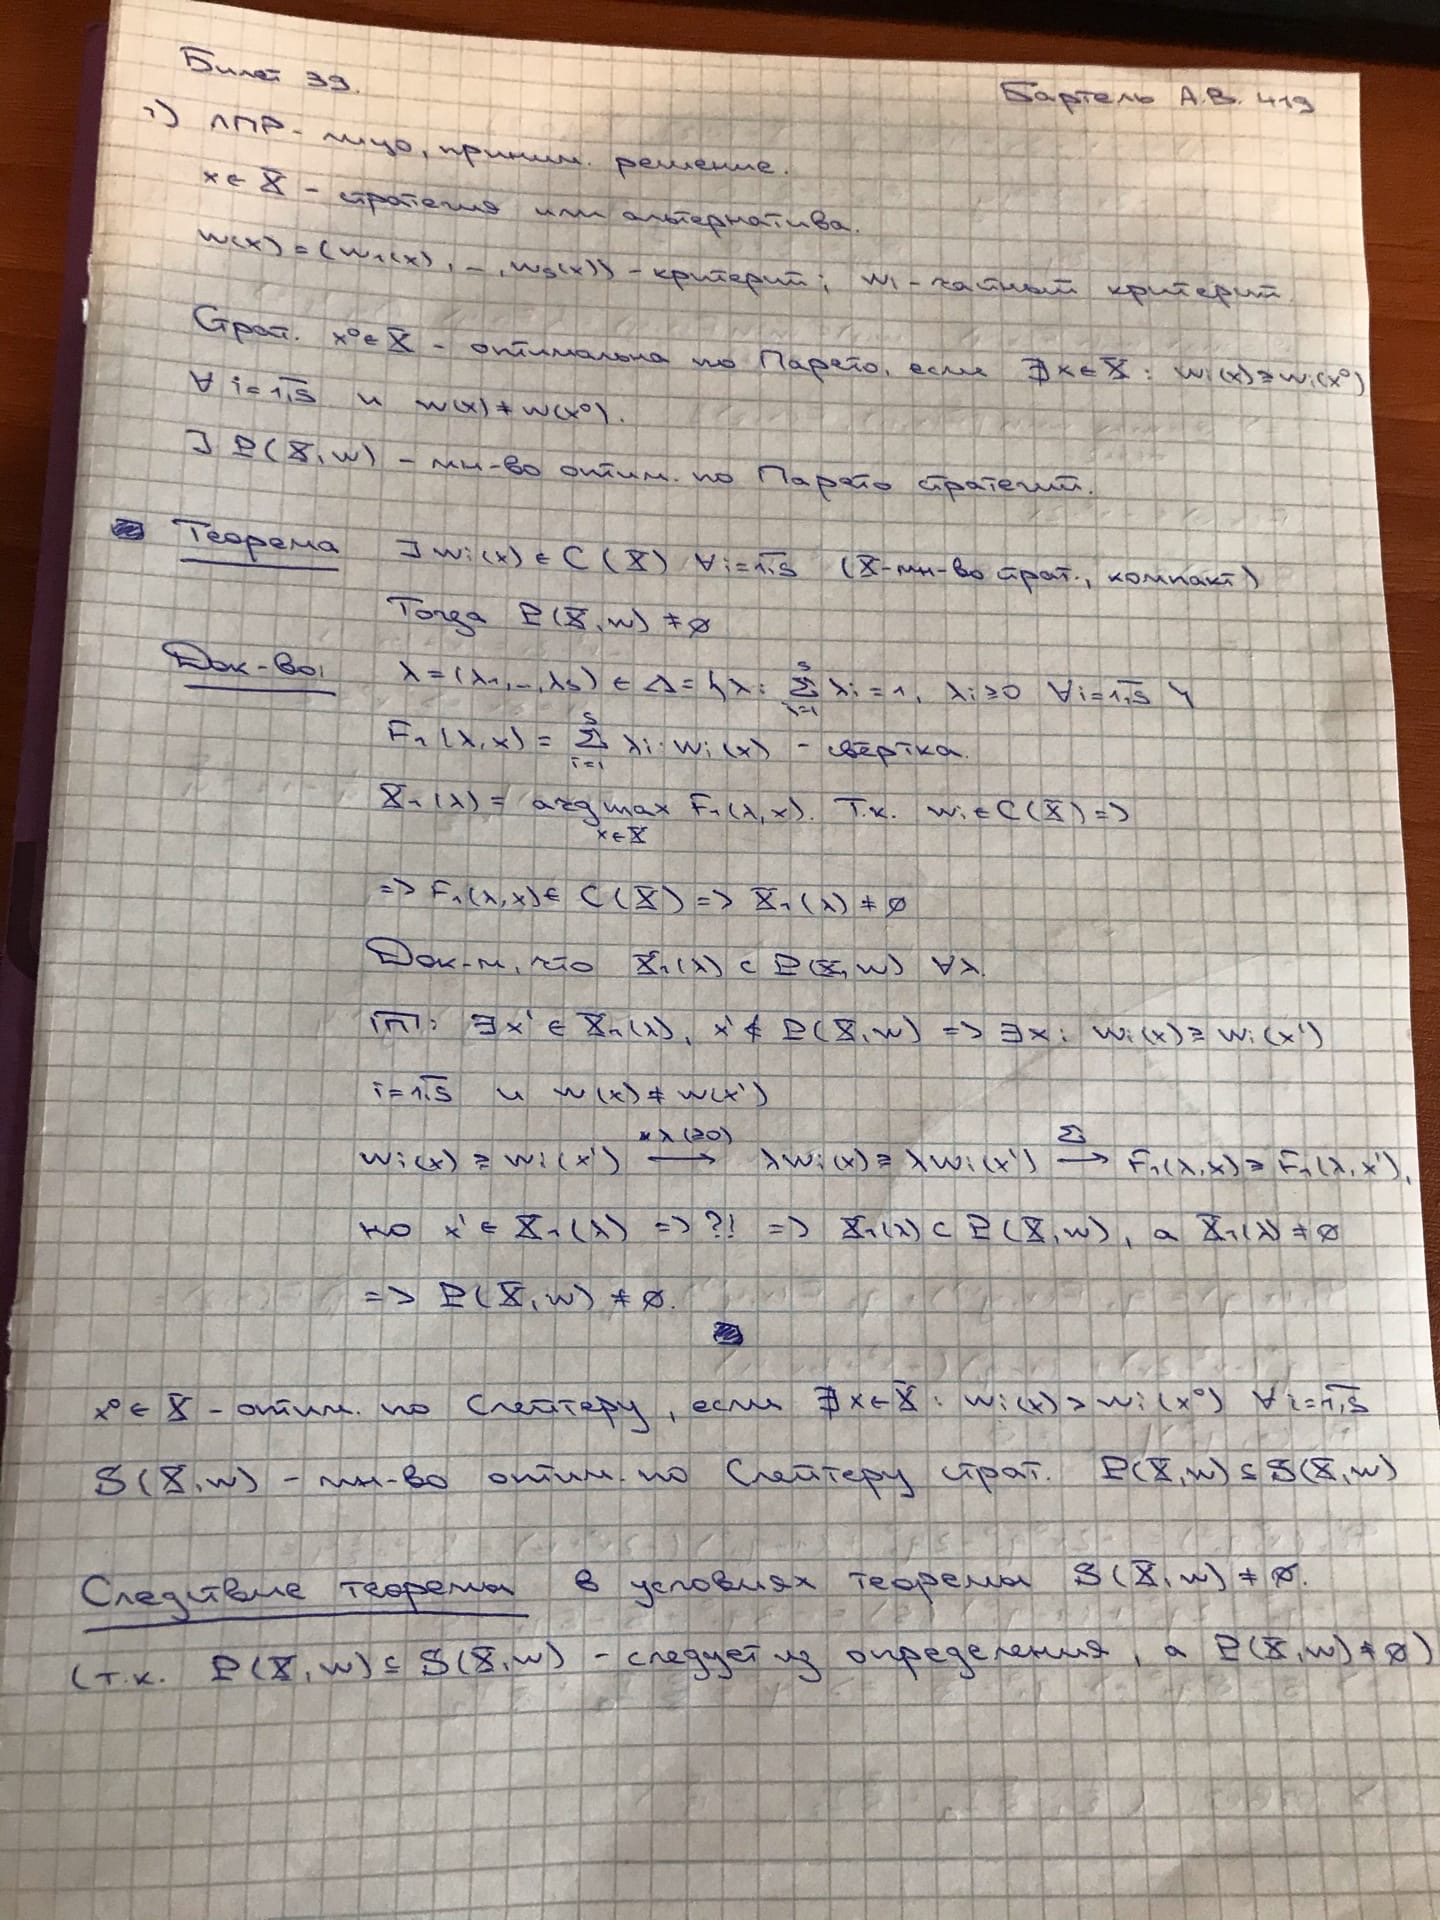 Билет 39.
Бартель А.В. 419
1) ЛПР - лицо, приним. решение.
x ∈ X - стратегия или альтернатива.
w(x) = (w₁(x), ..., wₛ(x)) - критерий; wᵢ - частный критерий.
Страт. x⁰ ∈ X - оптимальна по Парето, если ∄ x ∈ X : wᵢ(x) ≥ wᵢ(x⁰)
∀ i = 1,s и w(x) ≠ w(x⁰).
] P(X, w) - мн-во оптим. по Парето стратегий.
Теорема ] wᵢ(x) ∈ C(X) ∀ i = 1,s (X - мн-во страт., компакт)
Тогда P(X, w) ≠ ∅
Док-во: λ = (λ₁, ..., λₛ) ∈ Δ = {λ : ∑ᵢ₌₁ˢ λᵢ = 1, λᵢ ≥ 0 ∀ i = 1,s}
F₁(λ, x) = ∑ᵢ₌₁ˢ λᵢ · wᵢ(x) - свёртка.
X₁(λ) = argmax x∈X F₁(λ, x). Т.к. wᵢ ∈ C(X) =>
=> F₁(λ, x) ∈ C(X) => X₁(λ) ≠ ∅
Док-м, что X₁(λ) ⊂ P(X, w) ∀λ.
|П|: ∃ x' ∈ X₁(λ), x' ∉ P(X, w) => ∃ x : wᵢ(x) ≥ wᵢ(x')
i = 1,s и w(x) ≠ w(x')
wᵢ(x) ≥ wᵢ(x') *λ(≥0) → λwᵢ(x) ≥ λwᵢ(x') Σ → F₁(λ, x) ≥ F₁(λ, x'),
но x' ∈ X₁(λ) => ?! => X₁(λ) ⊂ P(X, w), а X₁(λ) ≠ ∅
=> P(X, w) ≠ ∅.
x⁰ ∈ X - оптим. по Слейтеру, если ∄ x ∈ X : wᵢ(x) > wᵢ(x⁰) ∀ i = 1,s
S(X, w) - мн-во оптим. по Слейтеру страт. P(X, w) ⊆ S(X, w)
Следствие теоремы в условиях теоремы S(X, w) ≠ ∅.
(т.к. P(X, w) ⊆ S(X, w) - следует из определения, а P(X, w) ≠ ∅)